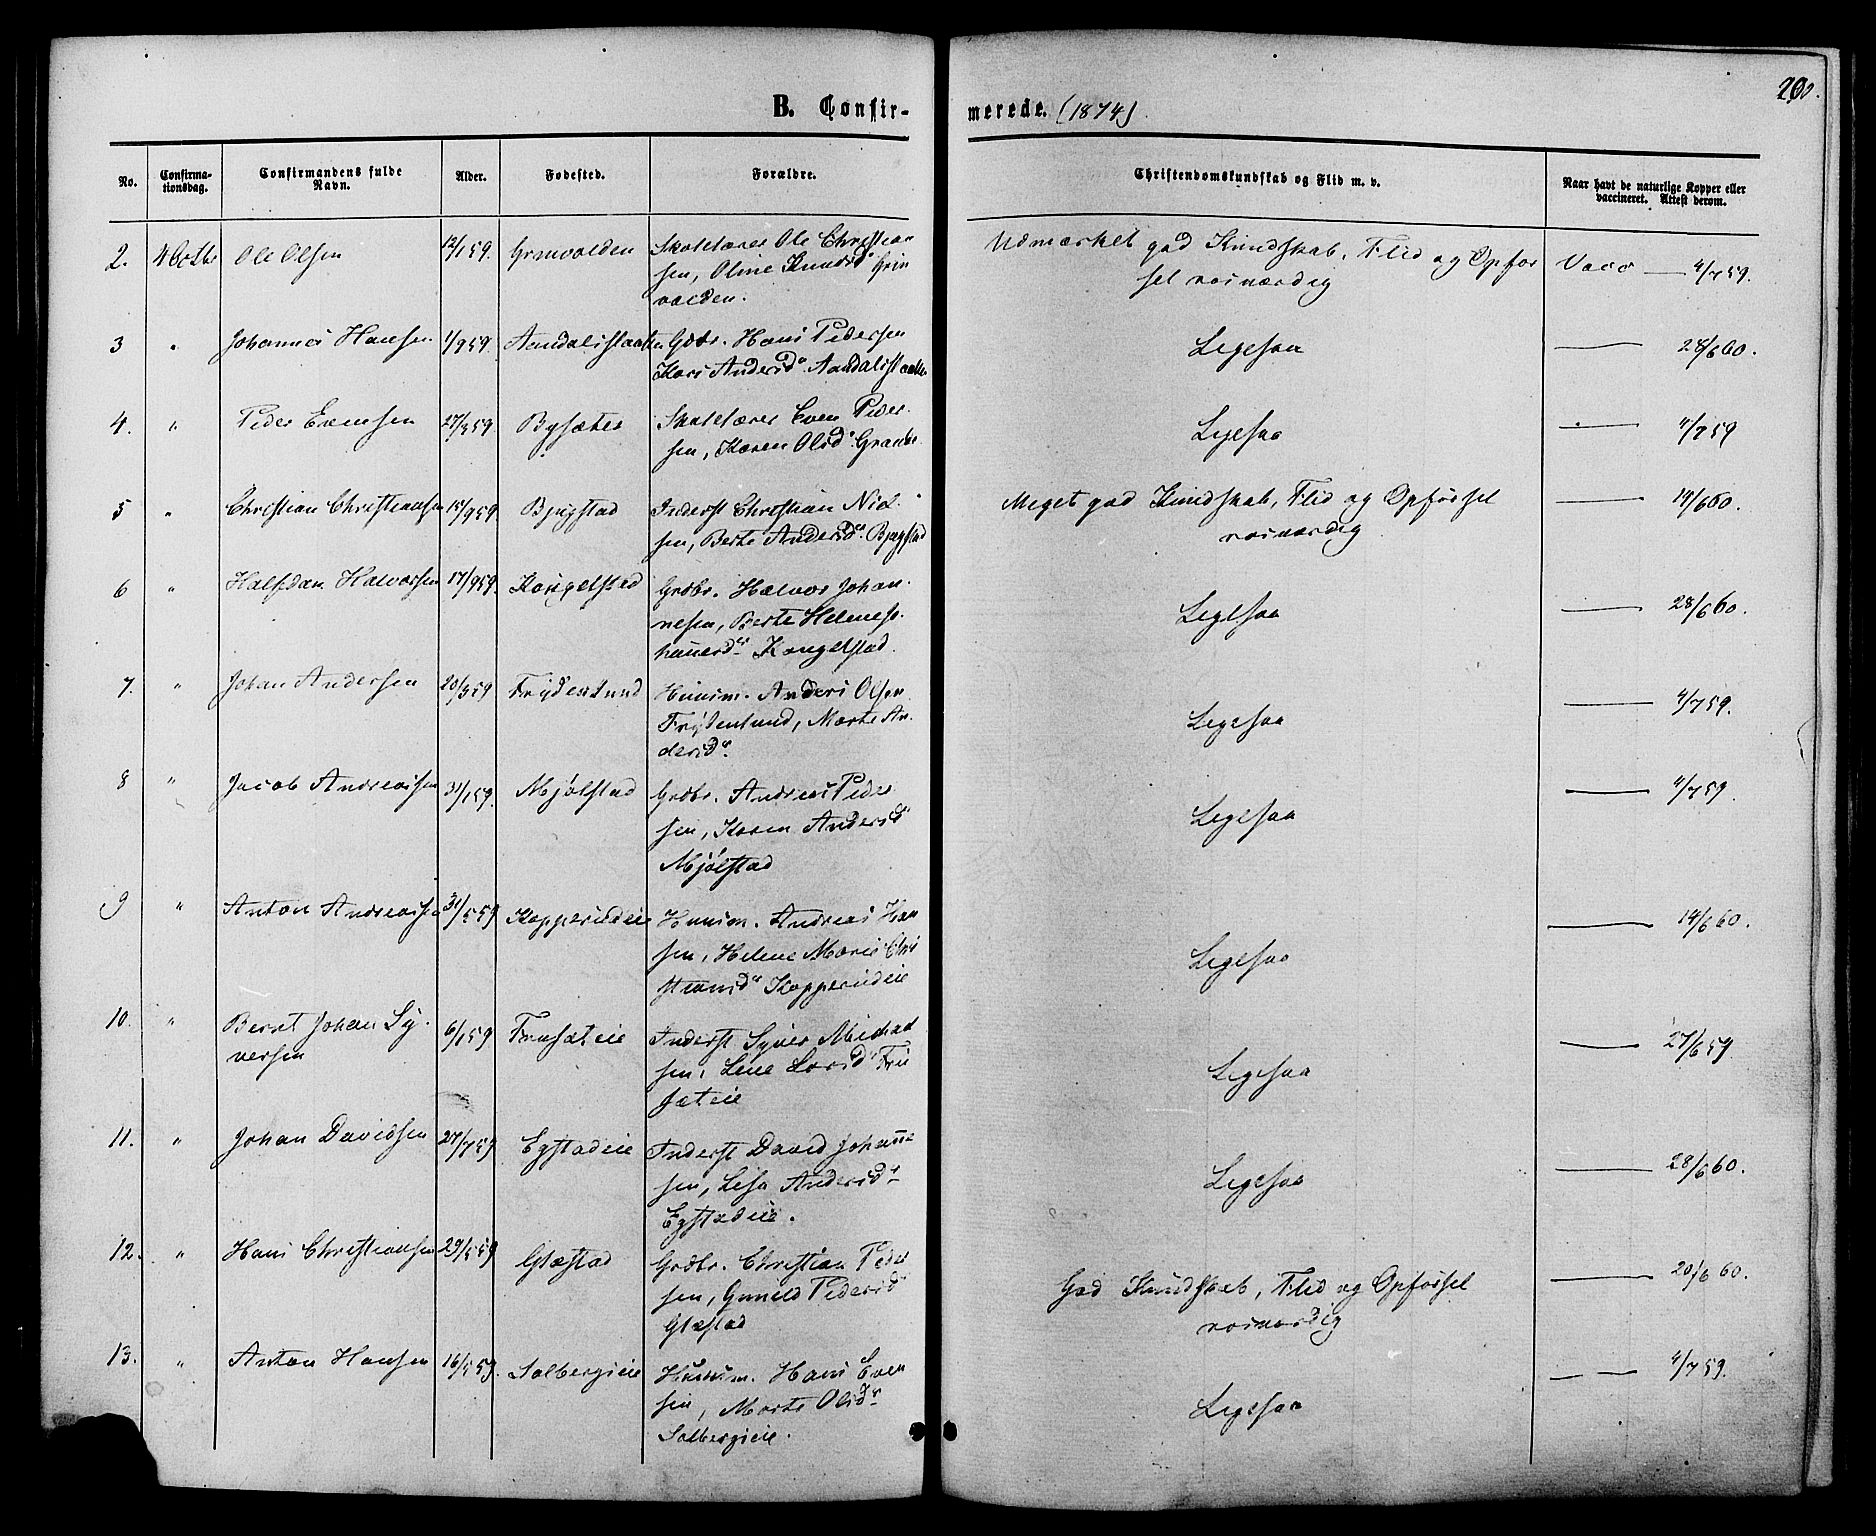 200.
B. Confir-
merede. (1874)
No.
Confirma-
tionsdag.
Confirmandens fulde
Navn.
Alder.
Fødested.
Forældre.
Christendomskundskab og Flid m. v.
Naar havt de naturlige Kopper eller
vaccineret. Attest derom.
2. 4 Octbr Ole Olsen 12/1 59. Grinvolden Skolelærer Ole Christian
sen, Oline Knudsd. Grin
volden.
Udmærket god Kundskab, Flid og Opfør
sel rosværdig
Vacc — 4/7 59.
3 " Johannes Hansen 1/9 59. Aandalsstaatten Grdbr. Hans Pedersen
Kari Andersd. Aandalsstaatten
Ligesaa — 28/6 60.
4. " Peder Evensen 27/3 59 Bysæter Skolelærer Even Peder
sen, Karen Olsd.
Ligesaa — 4/7 59
5 " Christian Christiansen 15/9 59 Bjugstad Inderst Christian Niel
sen, Berte Andersd. Bjugstad
Meget god Kundskab, Flid og Opførsel
rosværdig
— 19/6 60.
6 " Halfdan Halvorsen 17/9 59. Kongelstad Grdbr. Halvor Johan
nesen, Berte Helene Jo
hannesd. Kongelstad.
Ligesaa — 28/6 60.
7. " Johan Andersen 20/3 59 Frydenlund Huusm. Anders Olsen
Frydenlund, Marte An
dersd.
Ligesaa — 4/7 59.
8 " Jacob Andreassen 31/1 59. Mjølstad Grdbr. Andreas Peder
sen, Karen Andersd
Mjølstad
Ligesaa — 4/7 59.
9 " Anton Andreassen 31/5 59 Kopperudeie Huusm. Andreas Han
sen, Helene Marie Chri
stiansd. Kopperudeie
Ligesaa — 14/6 60.
10. " Bernt Johan Sy-
versen
6/1 59 Frusæteie Inderst Syver Michael
sen, Lene Larsd. Fru
sæteie
Ligesaa — 27/6 59
11. " Johan Davidsen 27/7 59 Egstadeie Inderst David Johanne
sen, Lisa Andersd.
Egstadeie.
Ligesaa — 28/6 60.
12. " Hans Christiansen 29/5 59 Glæstad Grdbr. Christian Peder
sen, Gunild Pedersd
Glæstad
God Kundskab, Flid og Opførsel
rosværdig
— 20/6 60.
13. " Anton Hansen 16/5 59. Solbergseie Huusm. Hans Even
sen, Marte Olsd.
Solbergseie.
Ligesaa — 4/7 59.